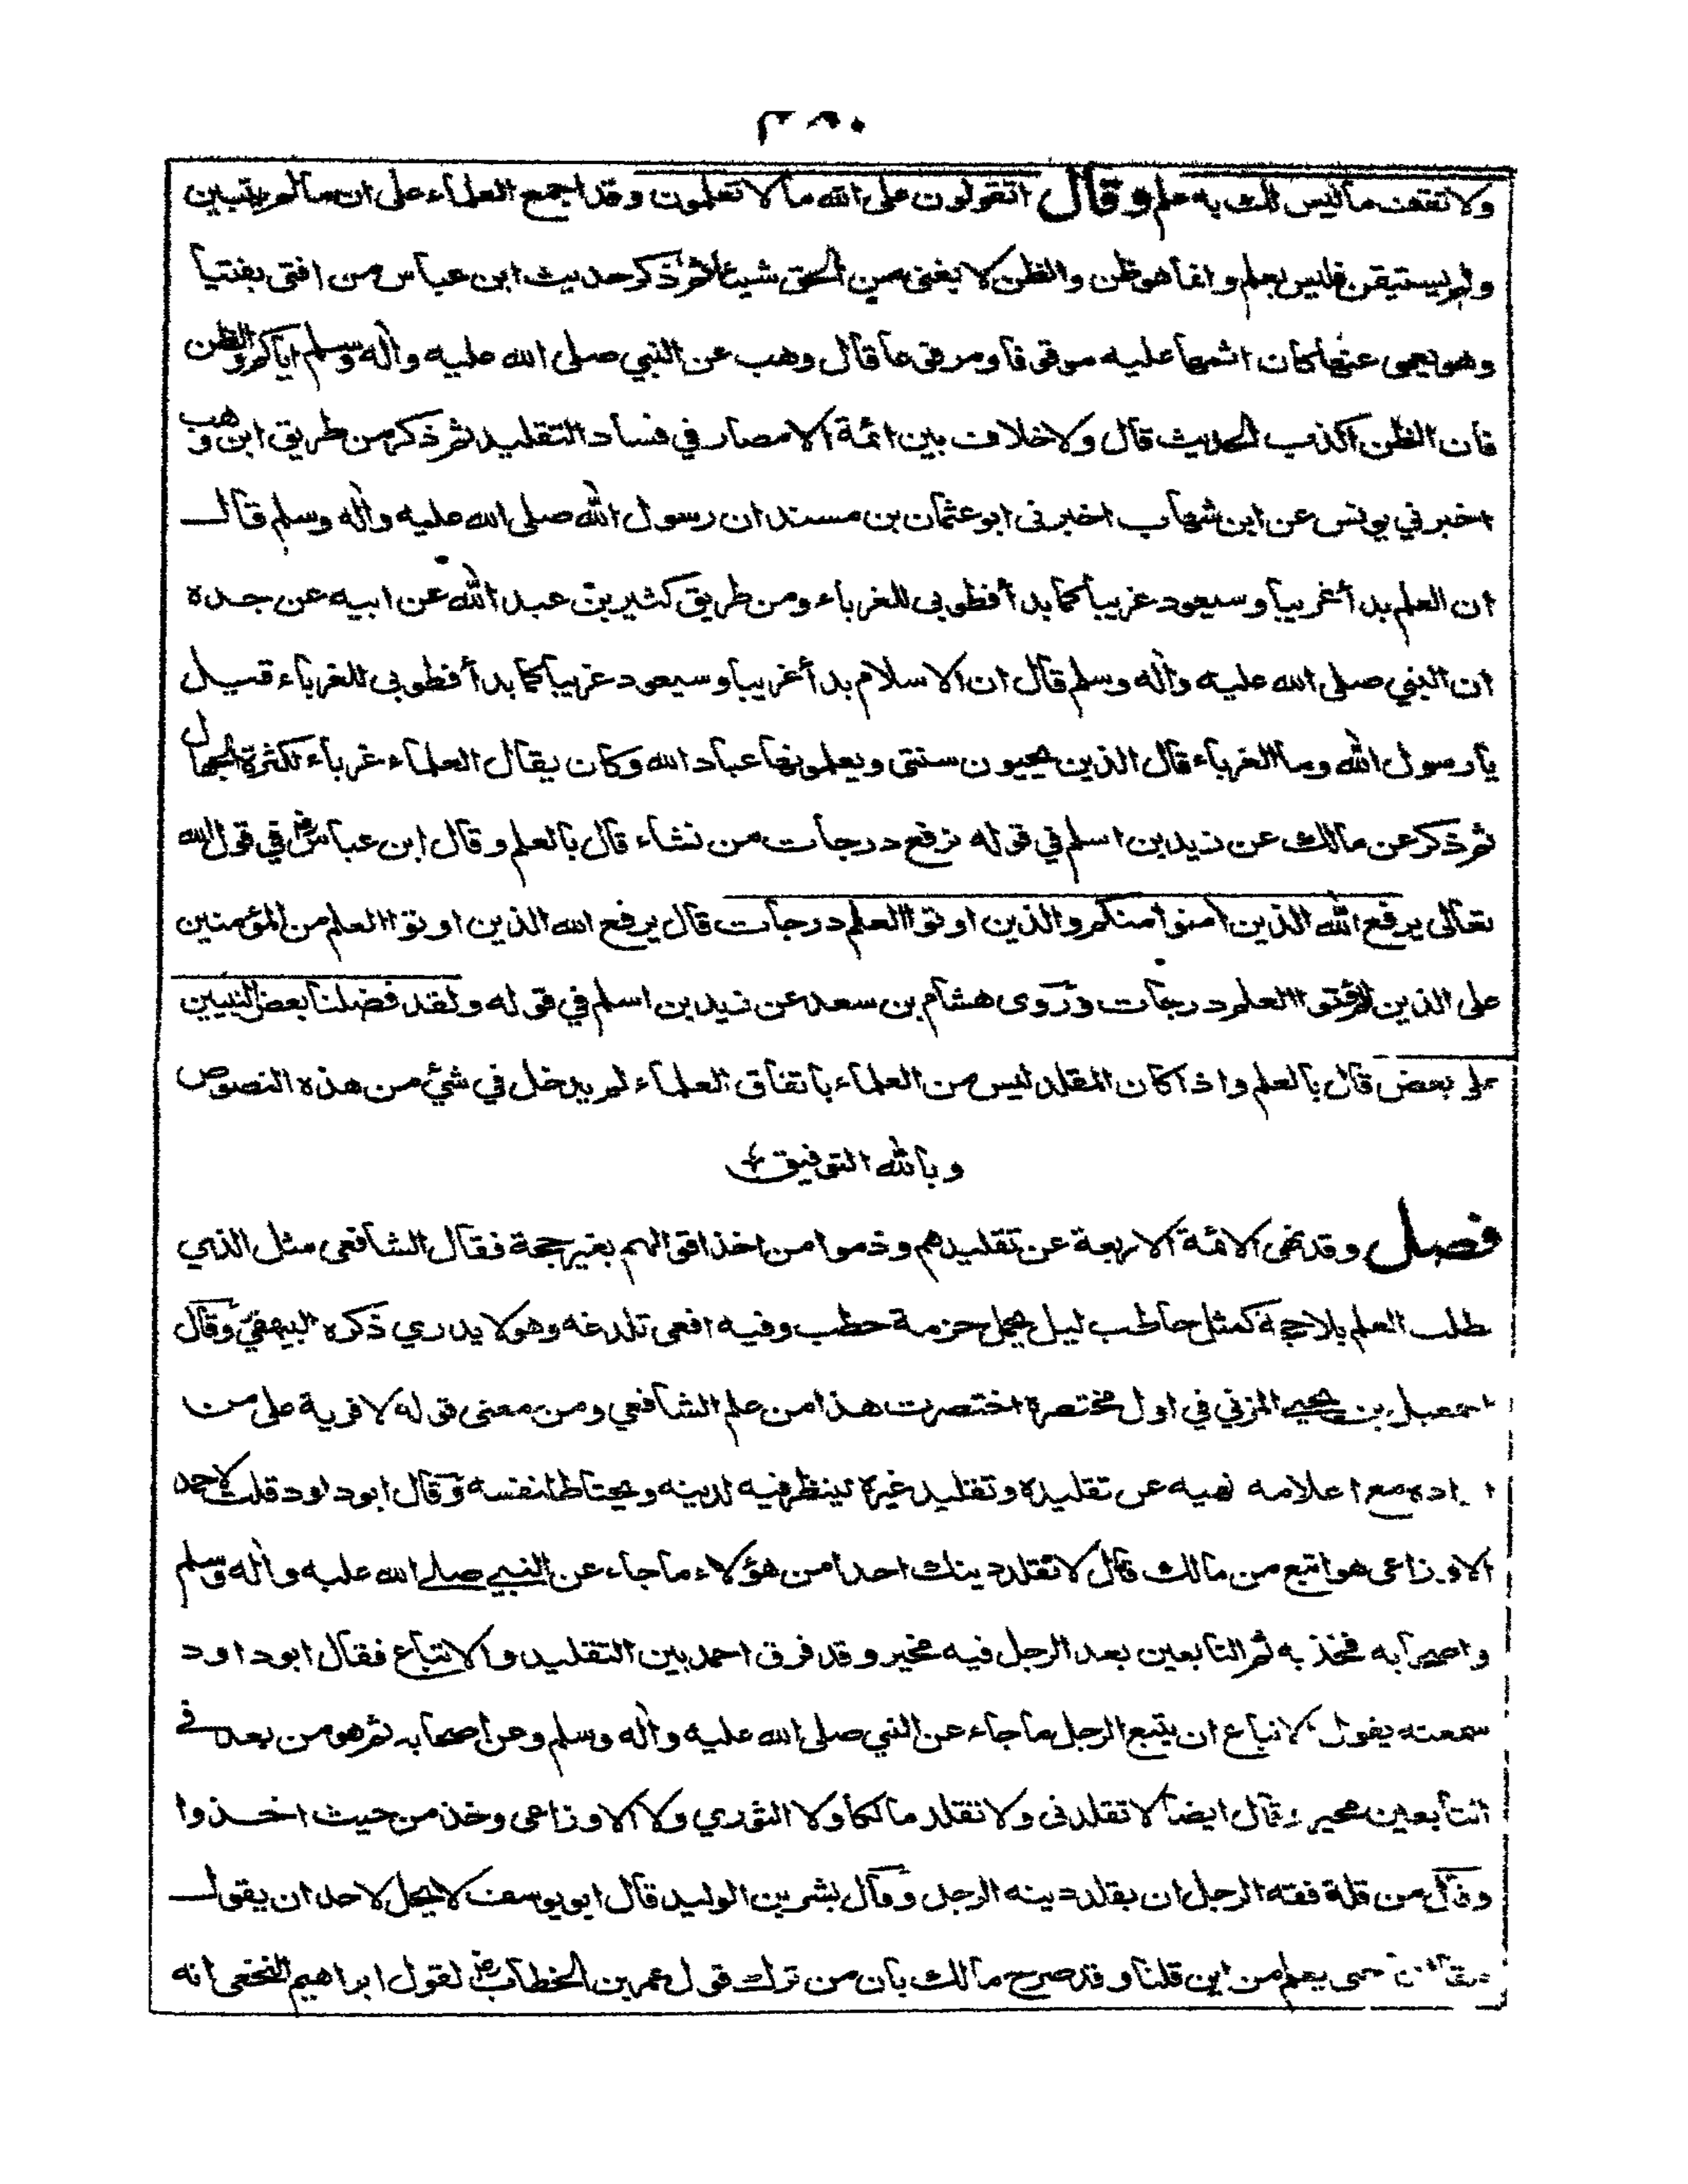 ولا تقف ما ليس لك به علم وقال اتقولون على الله ما لا تعلمون وقد اجمع العلماء على ان ما لم يتبين
ولم يستيقن فليس بعلم وانما هو ظن والظن لا يغنى من الحق شيئا ثم ذكر حديث ابن عباس من افتى بفتيا
وهو يعمى عنها كان اثمها عليه موقوفا ومرفوعا قال وهب عن النبي صلى الله عليه وآله وسلم اياكم والظن
فان الظن اكذب الحديث قال ولا خلاف بين ائمة الامصار في فساد التقليد ثم ذكر من طريق ابن وهب
اخبرني يونس عن ابن شهاب اخبرنى ابو عثمان بن مسند ان رسول الله صلى الله عليه وآله وسلم قال
ان العلم بدأ غريبا وسيعود غريبا كما بدأ فطوبى للغرباء ومن طريق كثير بن عبد الله عن ابيه عن جده
ان النبي صلى الله عليه وآله وسلم قال ان الاسلام بدأ غريبا وسيعود غريبا كما بدأ فطوبى للغرباء قيل
يا رسول الله وما الغرباء قال الذين يحيون سنتى ويعلمونها عباد الله وكان يقال العلماء غرباء لكثرة الجهال
ثم ذكر عن مالك عن زيد بن اسلم في قوله نرفع درجات من نشاء قال بالعلم وقال ابن عباس رض في قول الله
تعالى يرفع الله الذين آمنوا منكم والذين اوتوا العلم درجات قال يرفع الله الذين اوتوا العلم من المؤمنين
على الذين لم يؤتوا العلم درجات وروى هشام بن سعد عن زيد بن اسلم في قوله ولقد فضلنا بعض النبيين
على بعض قال بالعلم واذا كان المقلد ليس من العلماء باتفاق العلماء لم يدخل في شيء من هذه النصوص
وبالله التوفيق
فصل وقد نهى الائمة الاربعة عن تقليدهم وذموا من اخذ اقوالهم بغير حجة فقال الشافعى مثل الذي
طلب العلم بلا حجة كمثل حاطب ليل يحمل حزمة حطب وفيه افعى تلدغه وهو لا يدري ذكره البيهقي وقال
اسمعيل بن يحيى المزني في اول مختصره اختصرت هذا من علم الشافعي ومن معنى قوله لاقربه على من
اراده مع اعلامه نهيه عن تقليده وتقليد غيره لينظر فيه لدينه ويحتاط لنفسه وقال ابو داود قلت لاحمد
الاوزاعى هو اتبع من مالك قال لا تقلد دينك احدا من هؤلاء ما جاء عن النبي صلى الله عليه وآله وسلم
واصحابه فخذ به ثم التابعين بعد الرجل فيه مخير وقد فرق احمد بين التقليد والاتباع فقال ابو داود
سمعته يقول الاتباع ان يتبع الرجل ما جاء عن النبي صلى الله عليه وآله وسلم وعن اصحابه ثم هو من بعد في
التابعين مخير وقال ايضا لا تقلدنى ولا تقلد مالكا ولا الثوري ولا الاوزاعى وخذ من حيث اخذوا
وقال من قلة فقه الرجل ان يقلد دينه الرجل وقال بشر بن الوليد قال ابو يوسف لا يحل لاحد ان يقول
مقالتنا حتى يعلم من اين قلنا وقد صرح مالك بان من ترك قول عمر بن الخطاب رض لقول ابراهيم النخعى انه